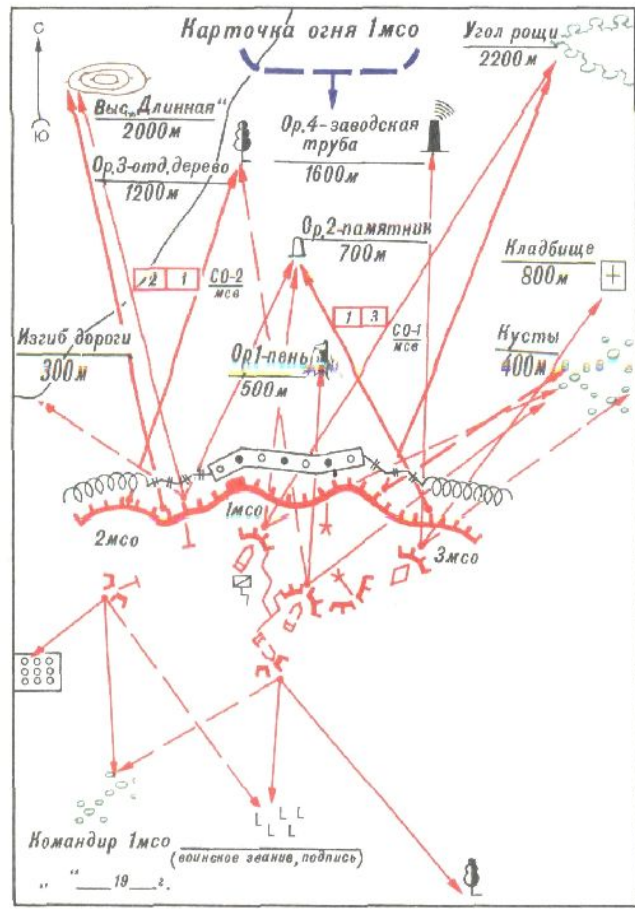 Карточка огня 1мсо
С
Ю
Угол рощи
2200м
Выс.„Длинная"
2000м
Ор.4-заводская
труба
1600м
Ор.3-отд.дерево
1200м
Ор.2-памятник
700м
Кладбище
800м
2 1
СО-2
мсв
1 3
СО-1
мсв
Изгиб дороги
300м
Ор1-пень
500м
Кусты
400м
2мсо
1мсо
3мсо
Командир 1мсо
(воинское звание, подпись)
„ "____19___г.